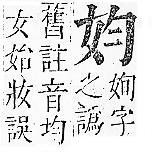 㚬
姰字
之譌
舊註音均
女始妝誤